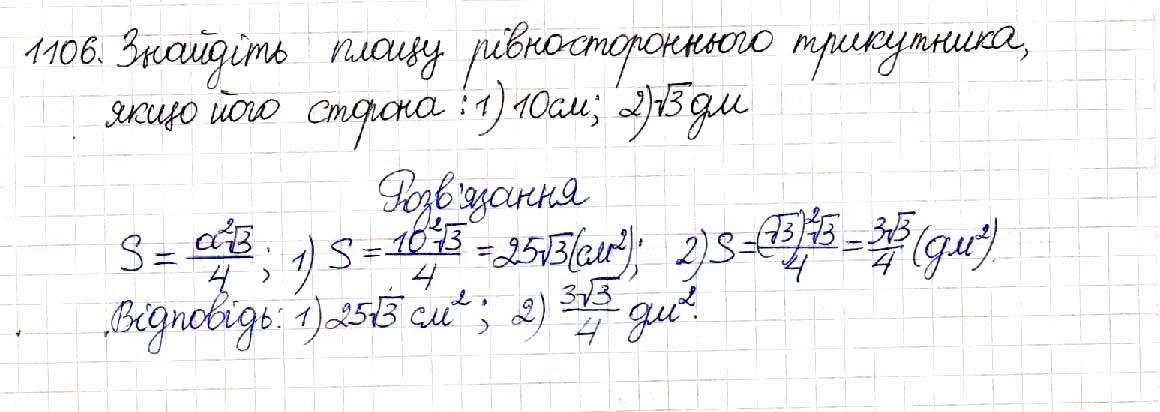 1106. Знайдіть площу рівностороннього трикутника,
якщо його сторона: 1) 10 см; 2) √3 дм
Розв'язання
S = a²√3/4; 1) S = 10²√3/4 = 25√3 (см²); 2) S = (√3)²√3/4 = 3√3/4 (дм²)
Відповідь: 1) 25√3 см²; 2) 3√3/4 дм².